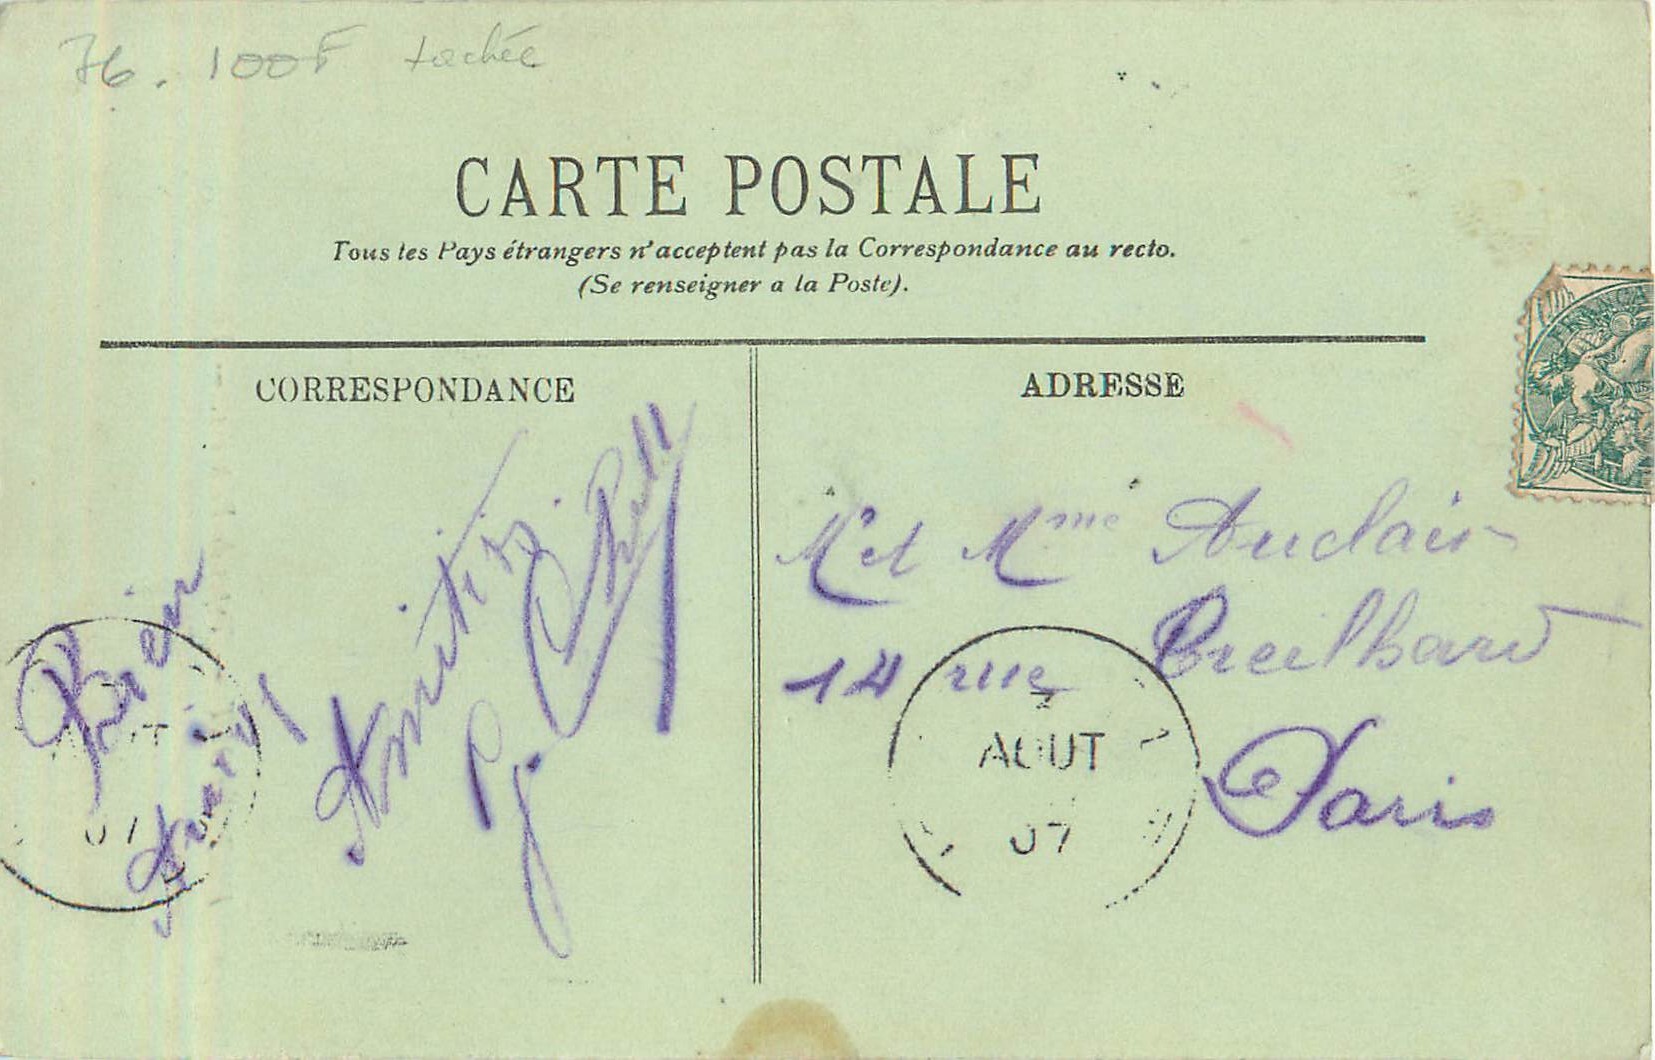 76. 100F tachée
CARTE POSTALE
Tous les Pays étrangers n'acceptent pas la Correspondance au recto.
(Se renseigner a la Poste).
CORRESPONDANCE
Bien
Amitiés
ADRESSE
Mr et Mme Auclair
14 rue Treilhard
Paris
AOUT
07